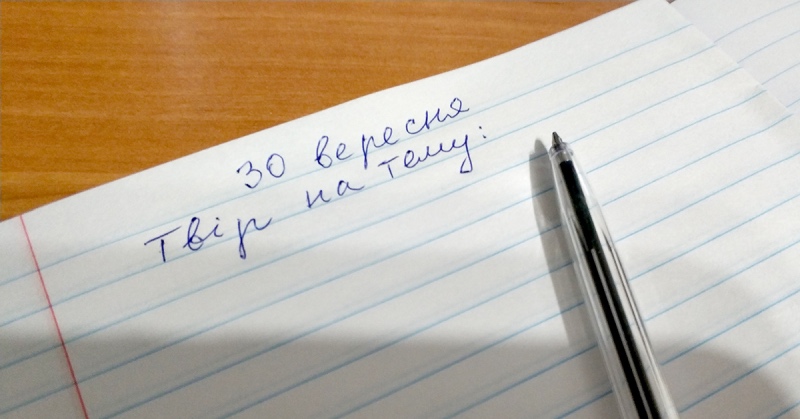 30 вересня
Твір на тему: